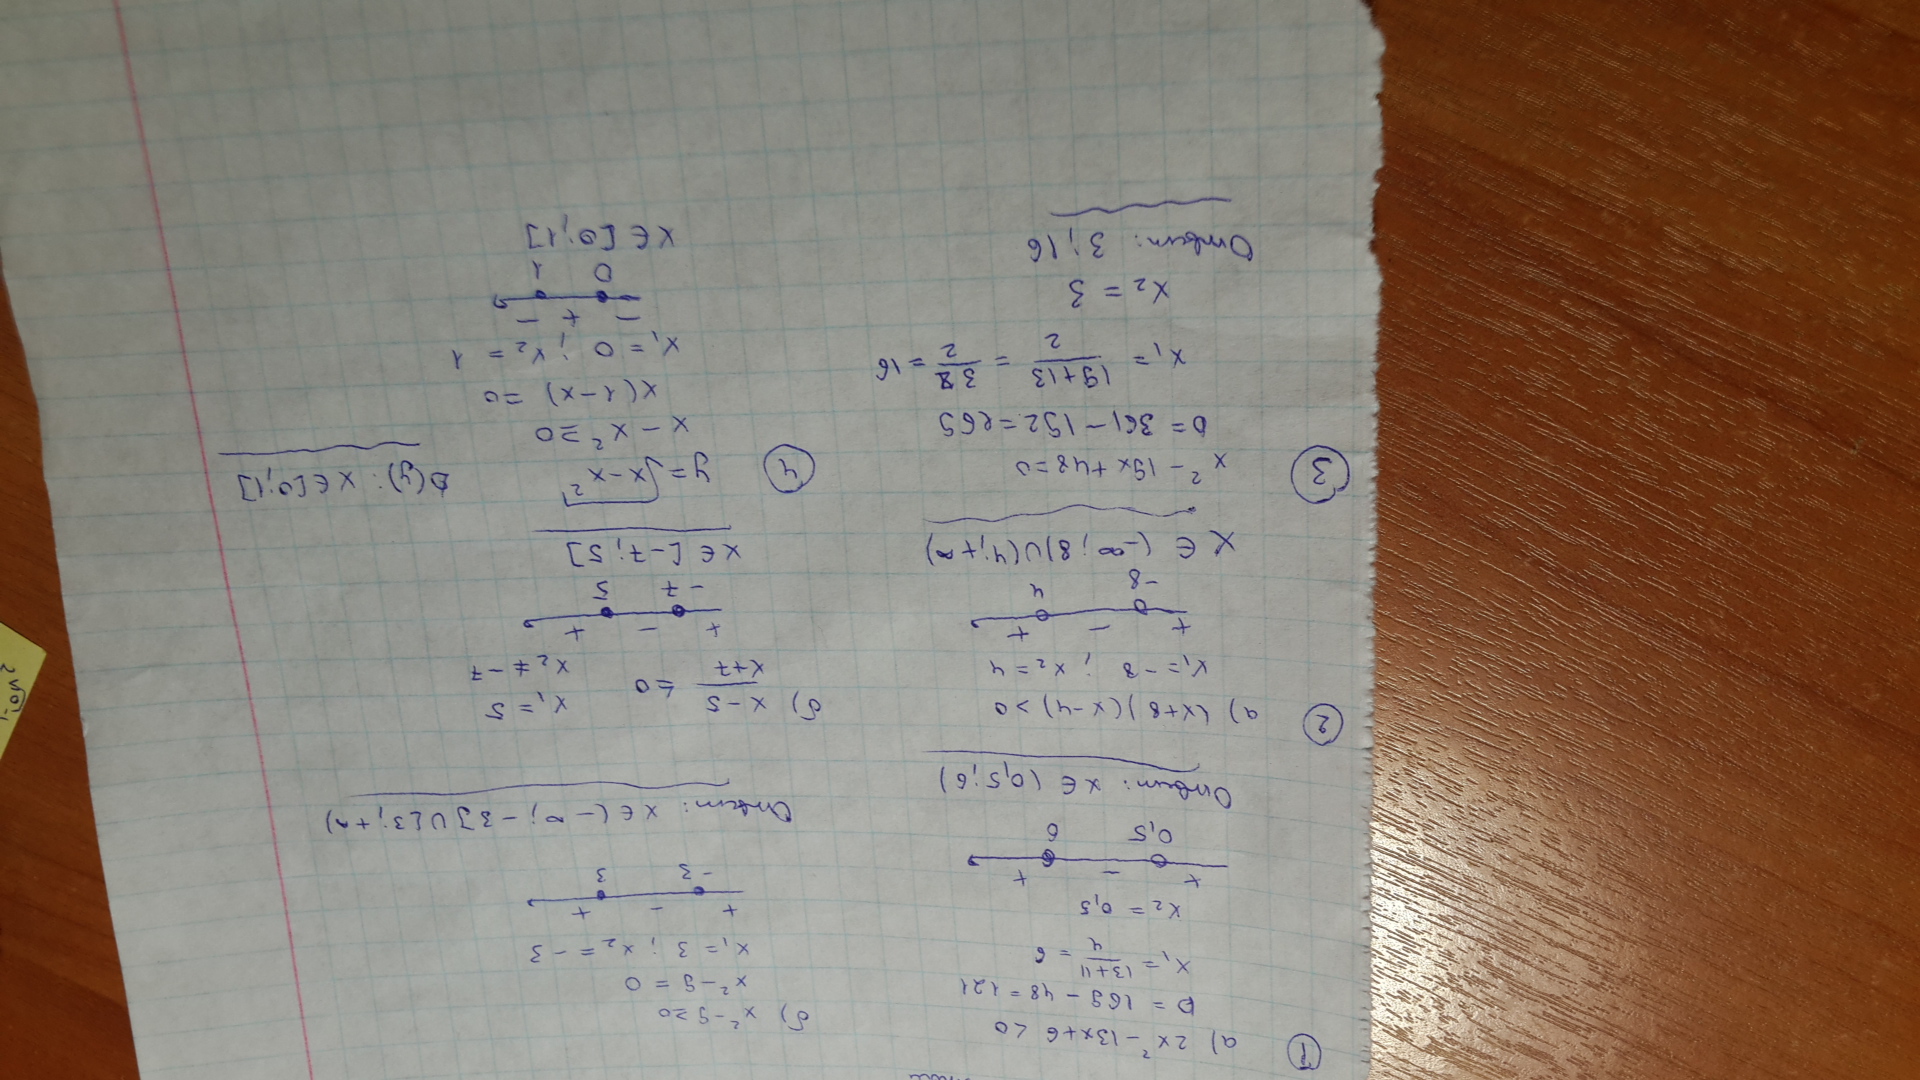 1
а) 2x² - 13x + 6 < 0
D = 169 - 48 = 121
x₁ = (13 + 11)/4 = 6
x₂ = 0,5
+ - +
0,5 6
Ответ: x ∈ (0,5; 6)
б) x² - 9 ≥ 0
x² - 9 = 0
x₁ = 3 ; x₂ = -3
+ - +
-3 3
Ответ: x ∈ (-∞; -3] ∪ [3; +∞)
2
а) (x + 8)(x - 4) > 0
x₁ = -8 ; x₂ = 4
+ - +
-8 4
x ∈ (-∞; 8) ∪ (4; +∞)
б) (x - 5)/(x + 7) ≤ 0
x₁ = 5
x₂ ≠ -7
+ - +
-7 5
x ∈ [-7; 5]
3
x² - 19x + 48 = 0
D = 361 - 192 = 169
x₁ = (19 + 13)/2 = 32/2 = 16
x₂ = 3
Ответ: 3; 16
4
y = √(x - x²)
x - x² ≥ 0
x(1 - x) = 0
x₁ = 0 ; x₂ = 1
- + -
0 1
x ∈ [0; 1]
D(y): x ∈ [0; 1]